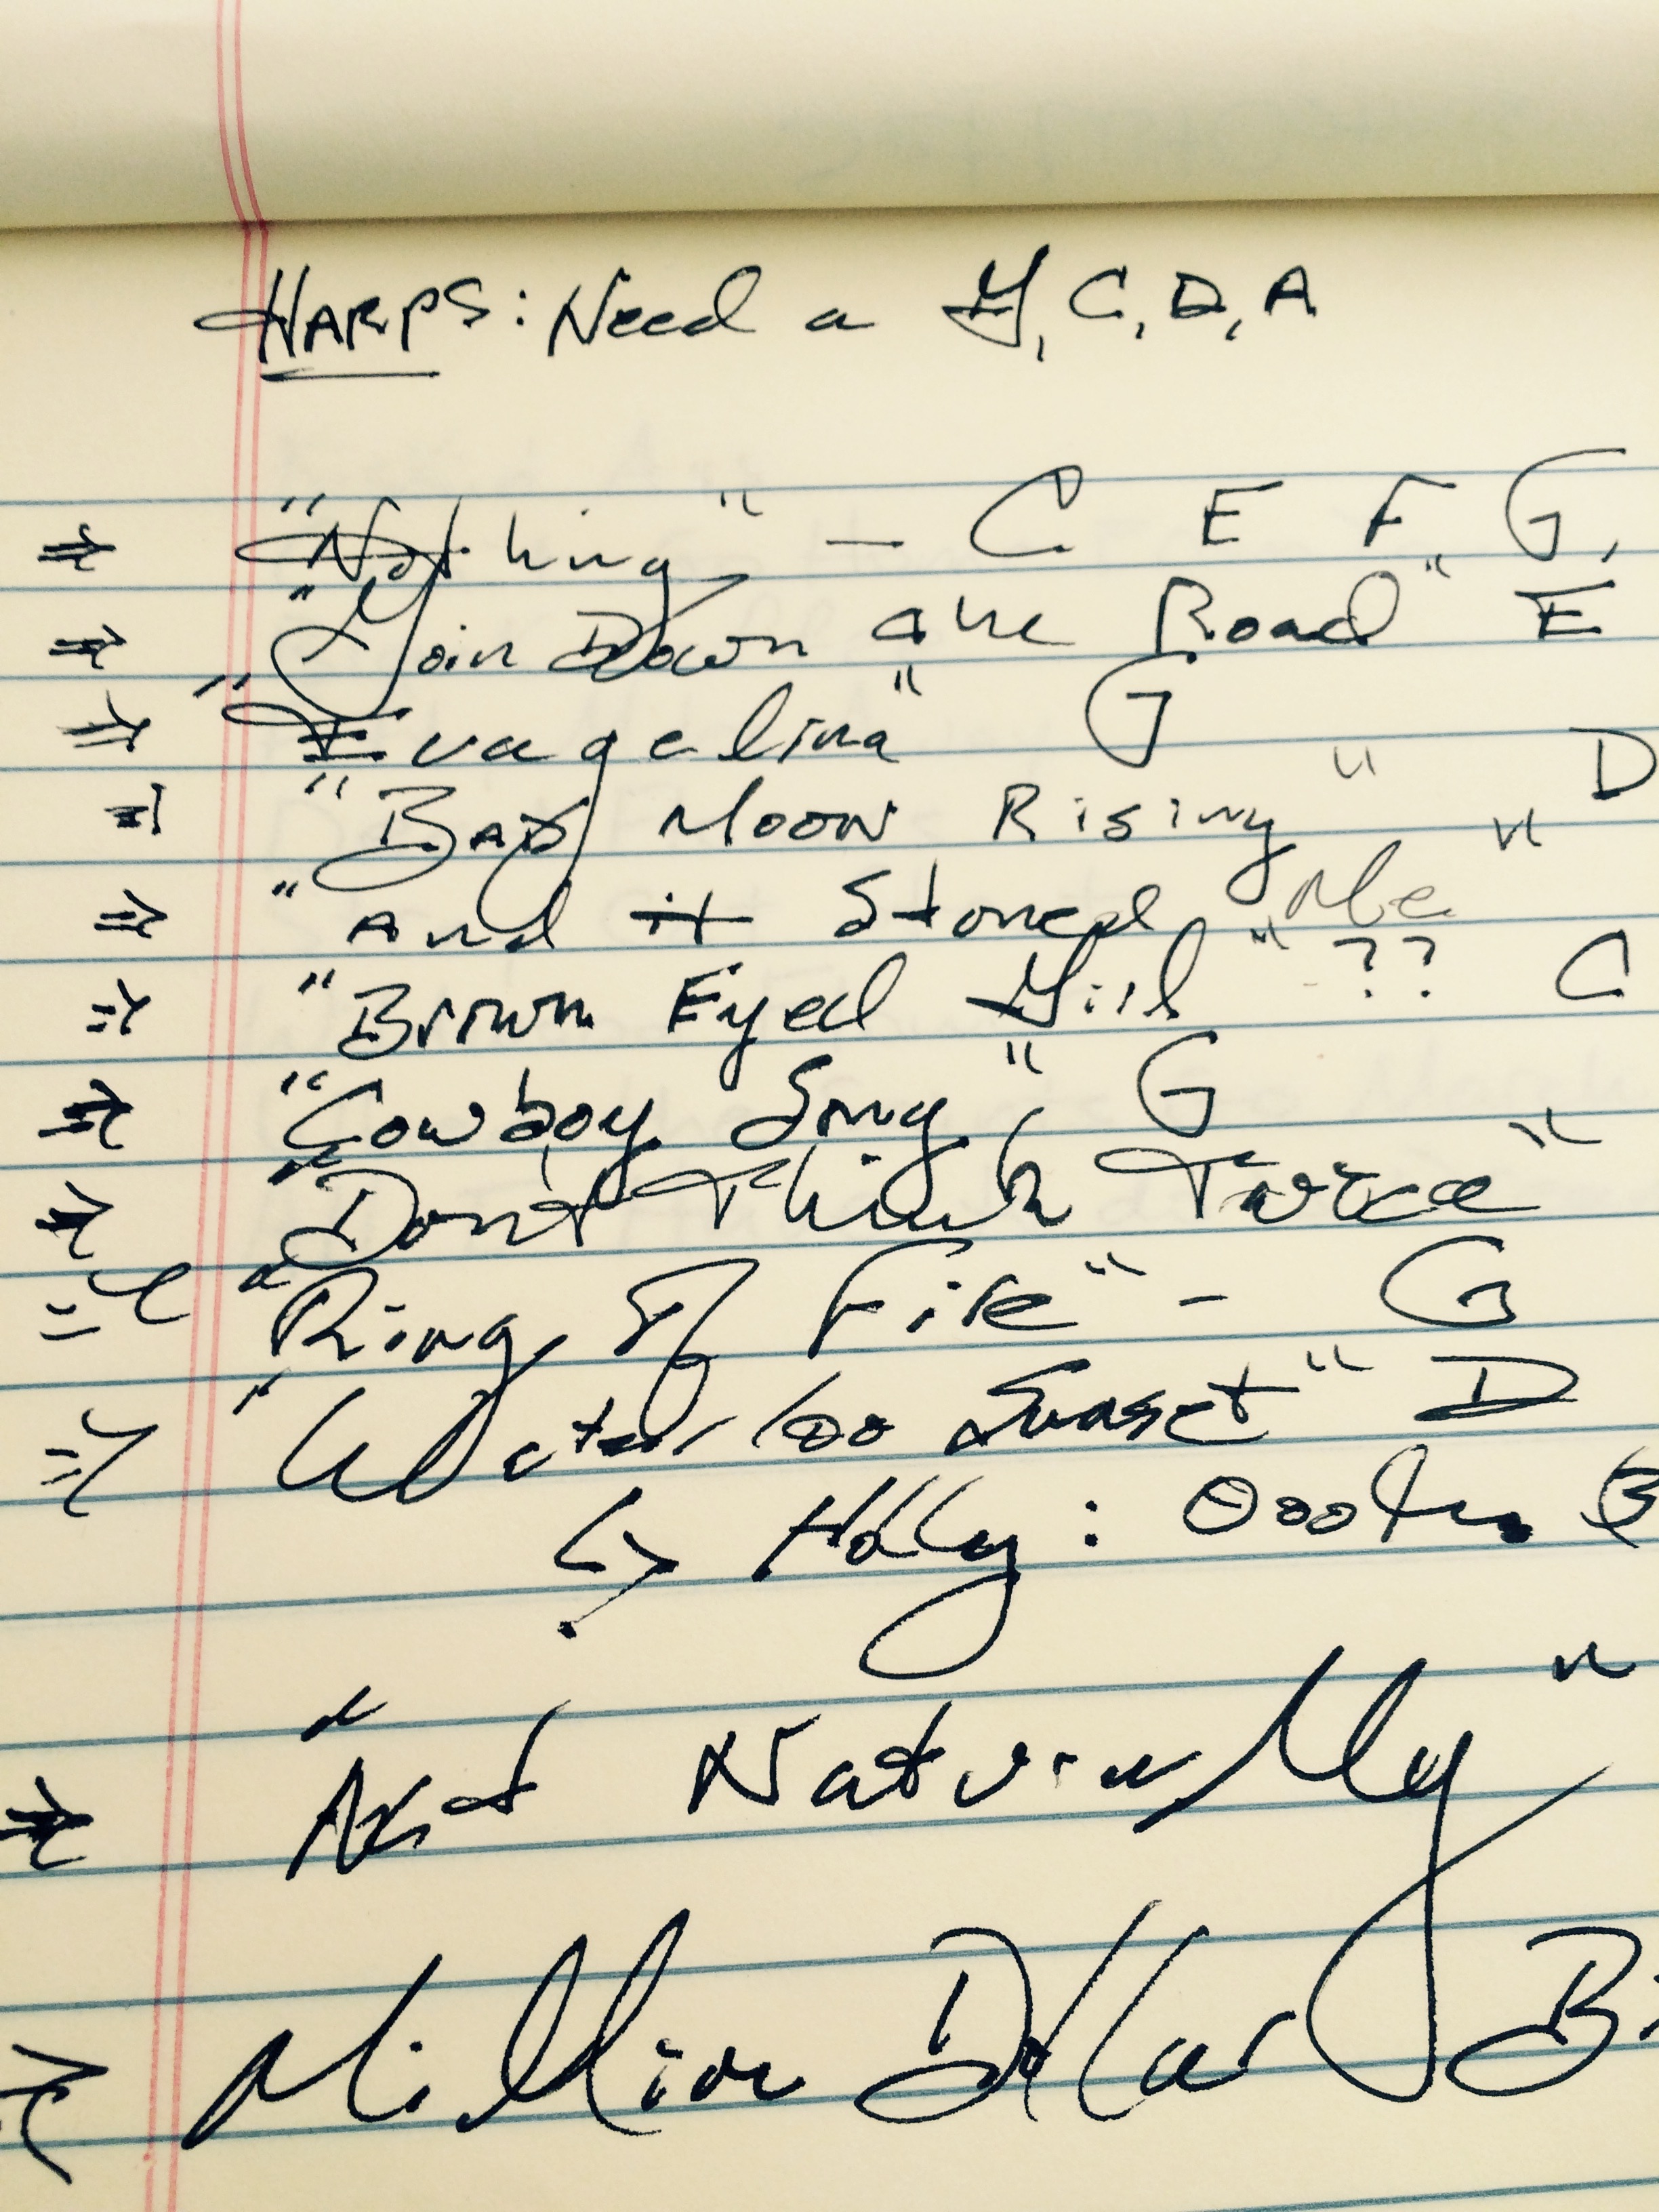 HARPS: Need a G, C, D, A
"Nothing" - C E F, G,
"Goin Down the Road" E
"Evagelina" G
"Bad Moon Rising" D
"And it Stoned Me"
"Brown Eyed Girl" ?? C
"Cowboy Song" G
"Don't Think Twice"
"Ring of Fire" - G
"Waterloo Sunset" D
↳ Holly:
"Act Naturally"
Million Dollar